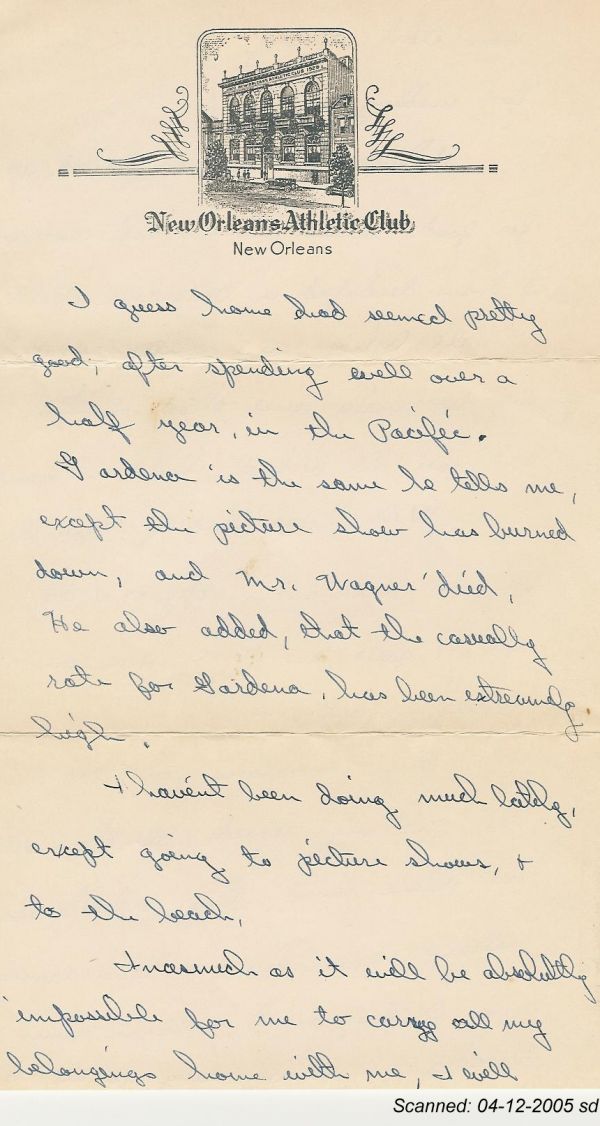 New Orleans Athletic Club
New Orleans
I guess home had seemed pretty
good, after spending well over a
half year, in the Pacific.
Gardena is the same he tells me,
except the picture show has burned
down, and Mr. Wagner died,
He also added, that the casually
rate for Gardena, has been extreamly
high.
I haven't been doing much lately,
except going to picture shows, &
to the beach,
Inasmuch as it will be absolutly
impossible for me to carry all my
belongings home with me, I will
Scanned: 04-12-2005 sd